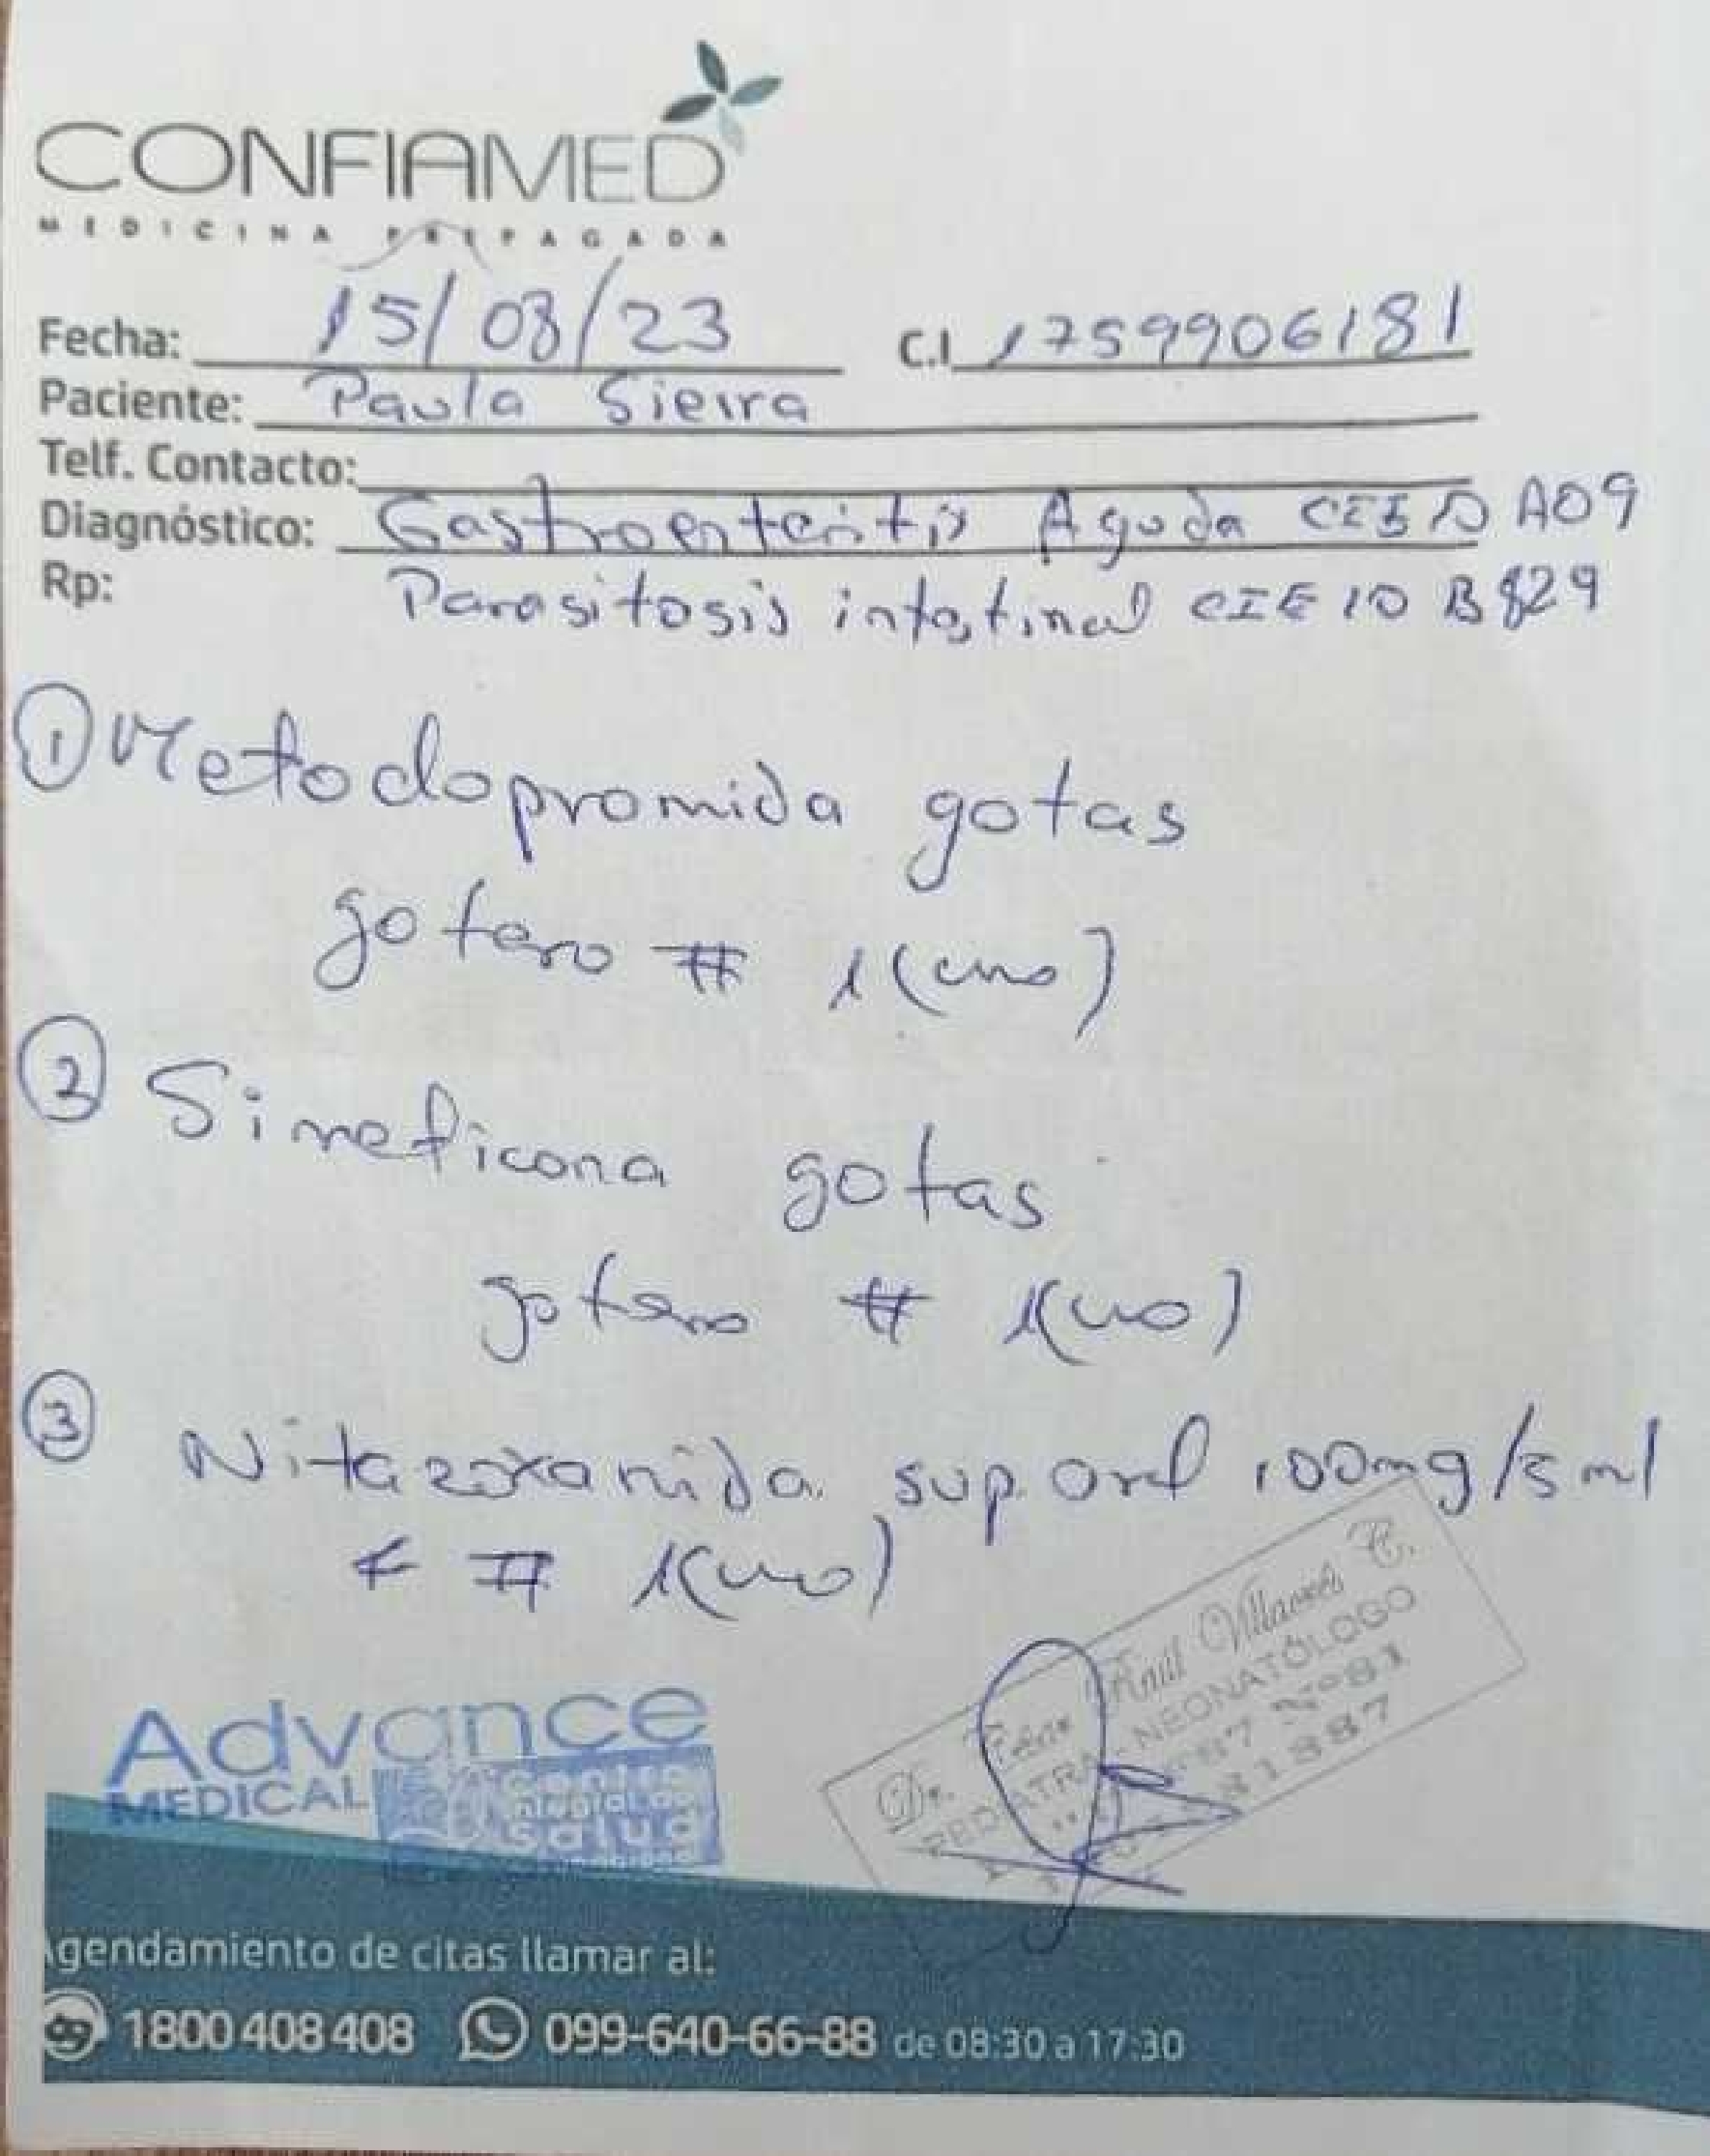 CONFIAMED
MEDICINA PREPAGADA
Fecha: 15/08/23 C.I 1759906181
Paciente: Paula Sierra
Telf. Contacto:
Diagnóstico: Gastroenteritis Aguda CIE 10 A09
Rp: Parasitosis intestinal CIE 10 B829
① Metoclopromida gotas
gotero # 1(uno)
② Simeticona gotas
gotero # 1(uno)
③ Nitazoxanida sup. oral 100mg/5ml
# 1(uno)
Dr. Raúl
PEDIATRA - NEONATÓLOGO
Advance
MEDICAL
salud
Agendamiento de citas llamar al:
1800 408 408 099-640-66-88 de 08:30 a 17:30